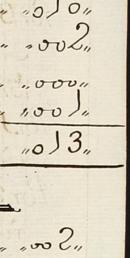 „ „010„
„ „002„
„ „000„
„ „001„
„013„
„ „002„